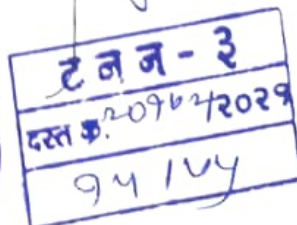 ट न न - ३
दस्त क्र. २०१७५२०२१
१५ / ५५